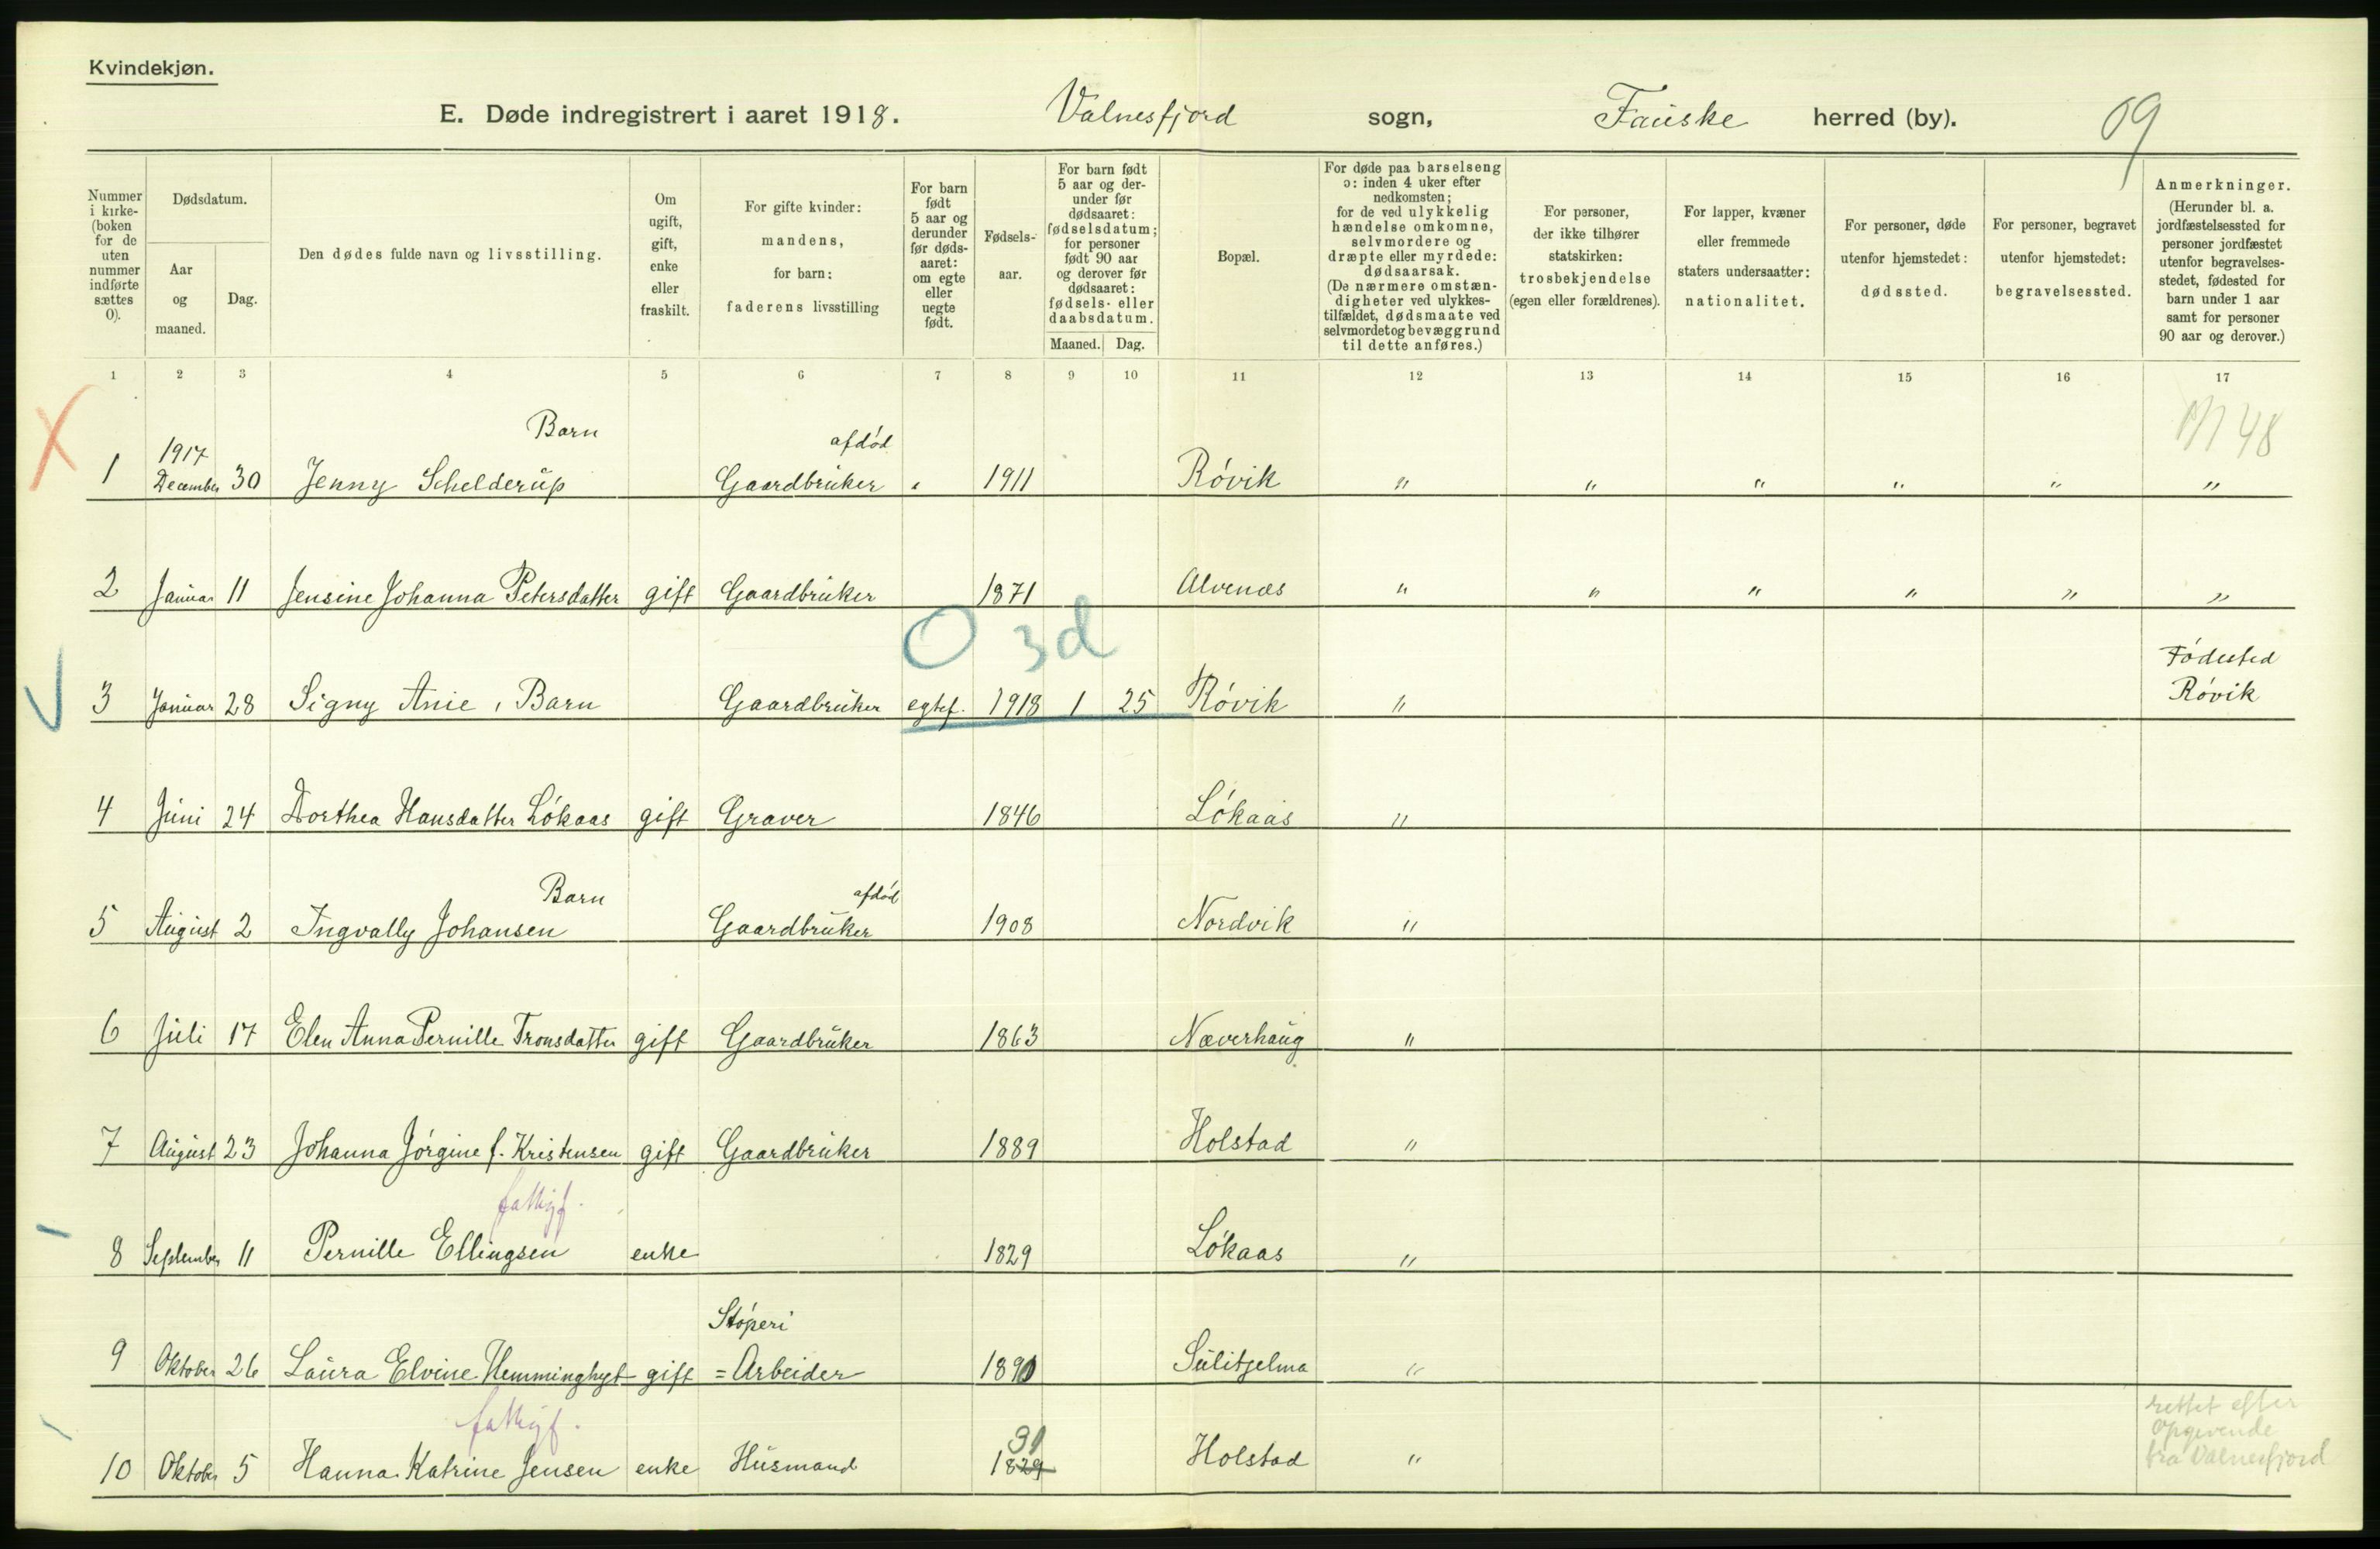 Kvindekjøn.
E. Døde indregistrert i aaret 1918. Valnesfjord sogn, Fauske herred (by). 09
Nummer i kirke- (boken for de uten nummer indførte sættes 0).
Dødsdatum.
Aar og maaned.
Dag.
Den dødes fulde navn og livsstilling.
Om ugift, gift, enke eller fraskilt.
For gifte kvinder: mandens, for barn: faderens livsstilling
For barn født 5 aar og derunder før døds- aaret: om egte eller uegte født.
Fødsels- aar.
For barn født 5 aar og der- under før dødsaaret: fødselsdatum; for personer født 90 aar og derover før dødsaaret: fødsels- eller daabsdatum.
Maaned. Dag.
Bopæl.
For døde paa barselseng ɔ: inden 4 uker efter nedkomsten; for de ved ulykkelig hændelse omkomne, selvmordere og dræpte eller myrdede: dødsaarsak. (De nærmere omstæn- digheter ved ulykkes- tilfældet, dødsmaate ved selvmordet og bevæggrund til dette anføres.)
For personer, der ikke tilhører statskirken: trosbekjendelse (egen eller forældrenes).
For lapper, kvæner eller fremmede staters undersaatter: nationalitet.
For personer, døde utenfor hjemstedet: dødssted.
For personer, begravet utenfor hjemstedet: begravelsessted.
Anmerkninger. (Herunder bl. a. jordfæstelsessted for personer jordfæstet utenfor begravelses- stedet, fødested for barn under 1 aar samt for personer 90 aar og derover.)
1 2 3 4 5 6 7 8 9 10 11 12 13 14 15 16 17
X Barn afdød 48
1 1917 December 30 Jenny Schelderup Gaardbruker " 1911 Røvik " " " " " "
2 Januar 11 Jensine Johanna Petersdatter gift Gaardbruker 1871 Alvenes " " " " " "
O 3d
3 Januar 28 Signy Anie, Barn Gaardbruker egtef. 1918 1 25 Røvik " Fødested Røvik
4 Juni 24 Dorthea Hansdatter Løkaas gift Graver 1846 Løkaas "
Barn afdød
5 August 2 Ingvally Johansen Gaardbruker 1908 Nordvik "
6 Juli 17 Elen Anna Pernille Tronsdatter gift Gaardbruker 1863 Næverhaug "
7 August 23 Johanna Jørgine f. Kristensen gift Gaardbruker 1889 Holstad "
fattigf.
8 September 11 Pernille Ellingsen enke 1829 Løkaas "
Støperi
9 Oktober 26 Laura Elvine Hemminghyt gift =Arbeider 1890 Sulitjelma "
fattigf. 31 rettet efter Opgivende fra Valnesfjord
10 Oktober 5 Hanna Katrine Jensen enke Husmand 1829 Holstad "